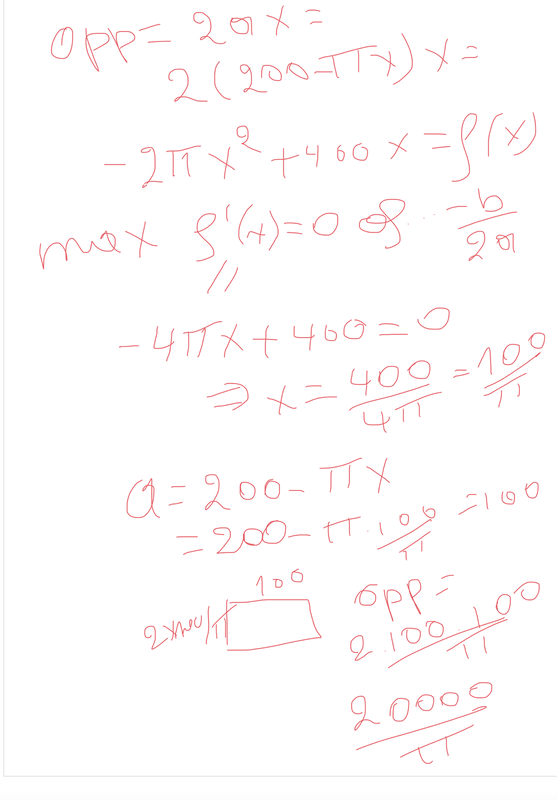 opp = 2ax =
2(200-πx)x =
-2πx² + 400x = f(x)
max f'(x) = 0 of ... -b/2a
//
-4πx + 400 = 0
⇒ x = 400/4π = 100/π
a = 200 - πx
= 200 - π·100/π = 100
100
opp =
2·100·100/π
20000/π